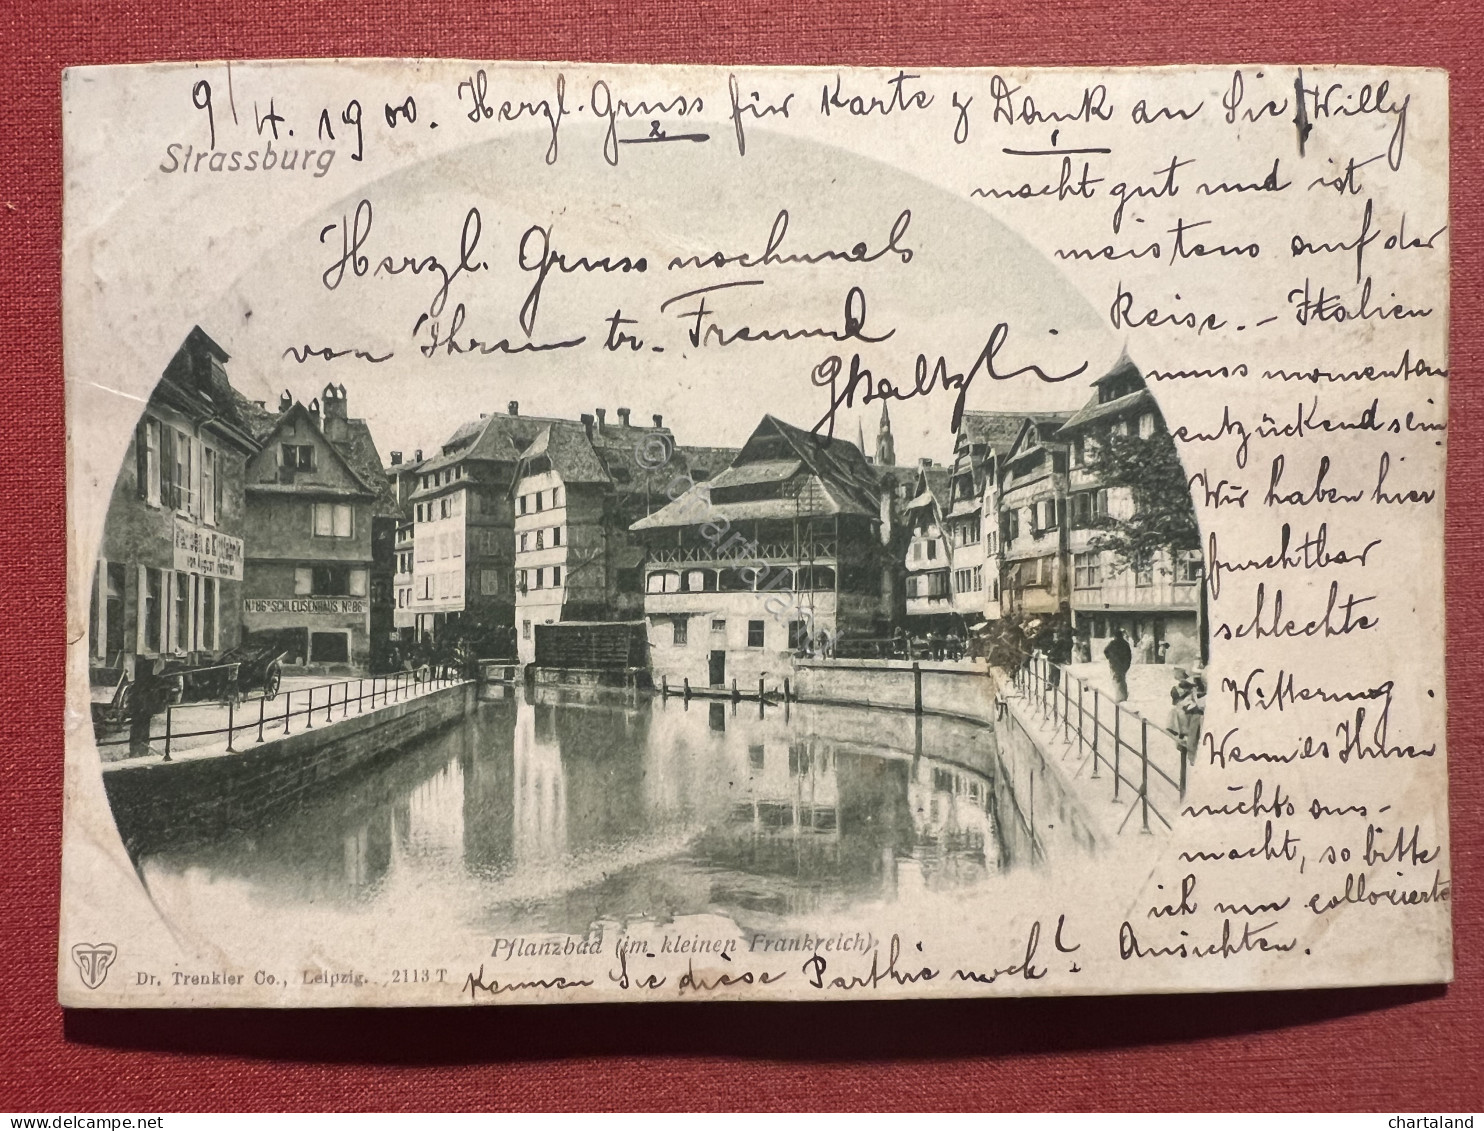 9/4. 1900. Herzl. Gruss für Karte & Dank an Sie! Willy
Strassburg
macht gut und ist
meistens auf der
Reise. - Italien
muss momentan
entzückend sein
Wir haben hier
furchtbar
schlechte
Witterung.
Wenn es Ihnen
nichts aus-
macht, so bitte
ich um collorierte
Ansichten.
Herzl. Gruss nochmals
von Ihrem tr. Freund
No 86a SCHLEUSENHAUS No 86a
Pflanzbad (im kleinen Frankreich)
Dr. Trenkler Co., Leipzig. 2113 T
Kennen Sie diese Parthie noch?
chartaland